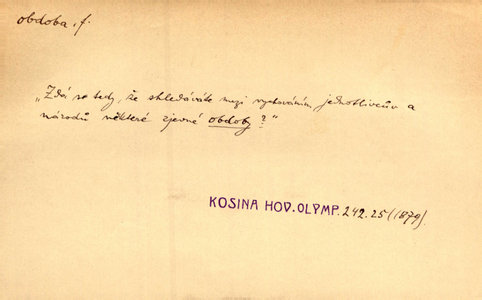 obdoba, f.
„Zdá se tedy, že shledáváte mezi vychováním jednotlivcův a
národů některé zjevné obdoby?“
KOSINA HOV. OLYMP. 242.25 (1879).